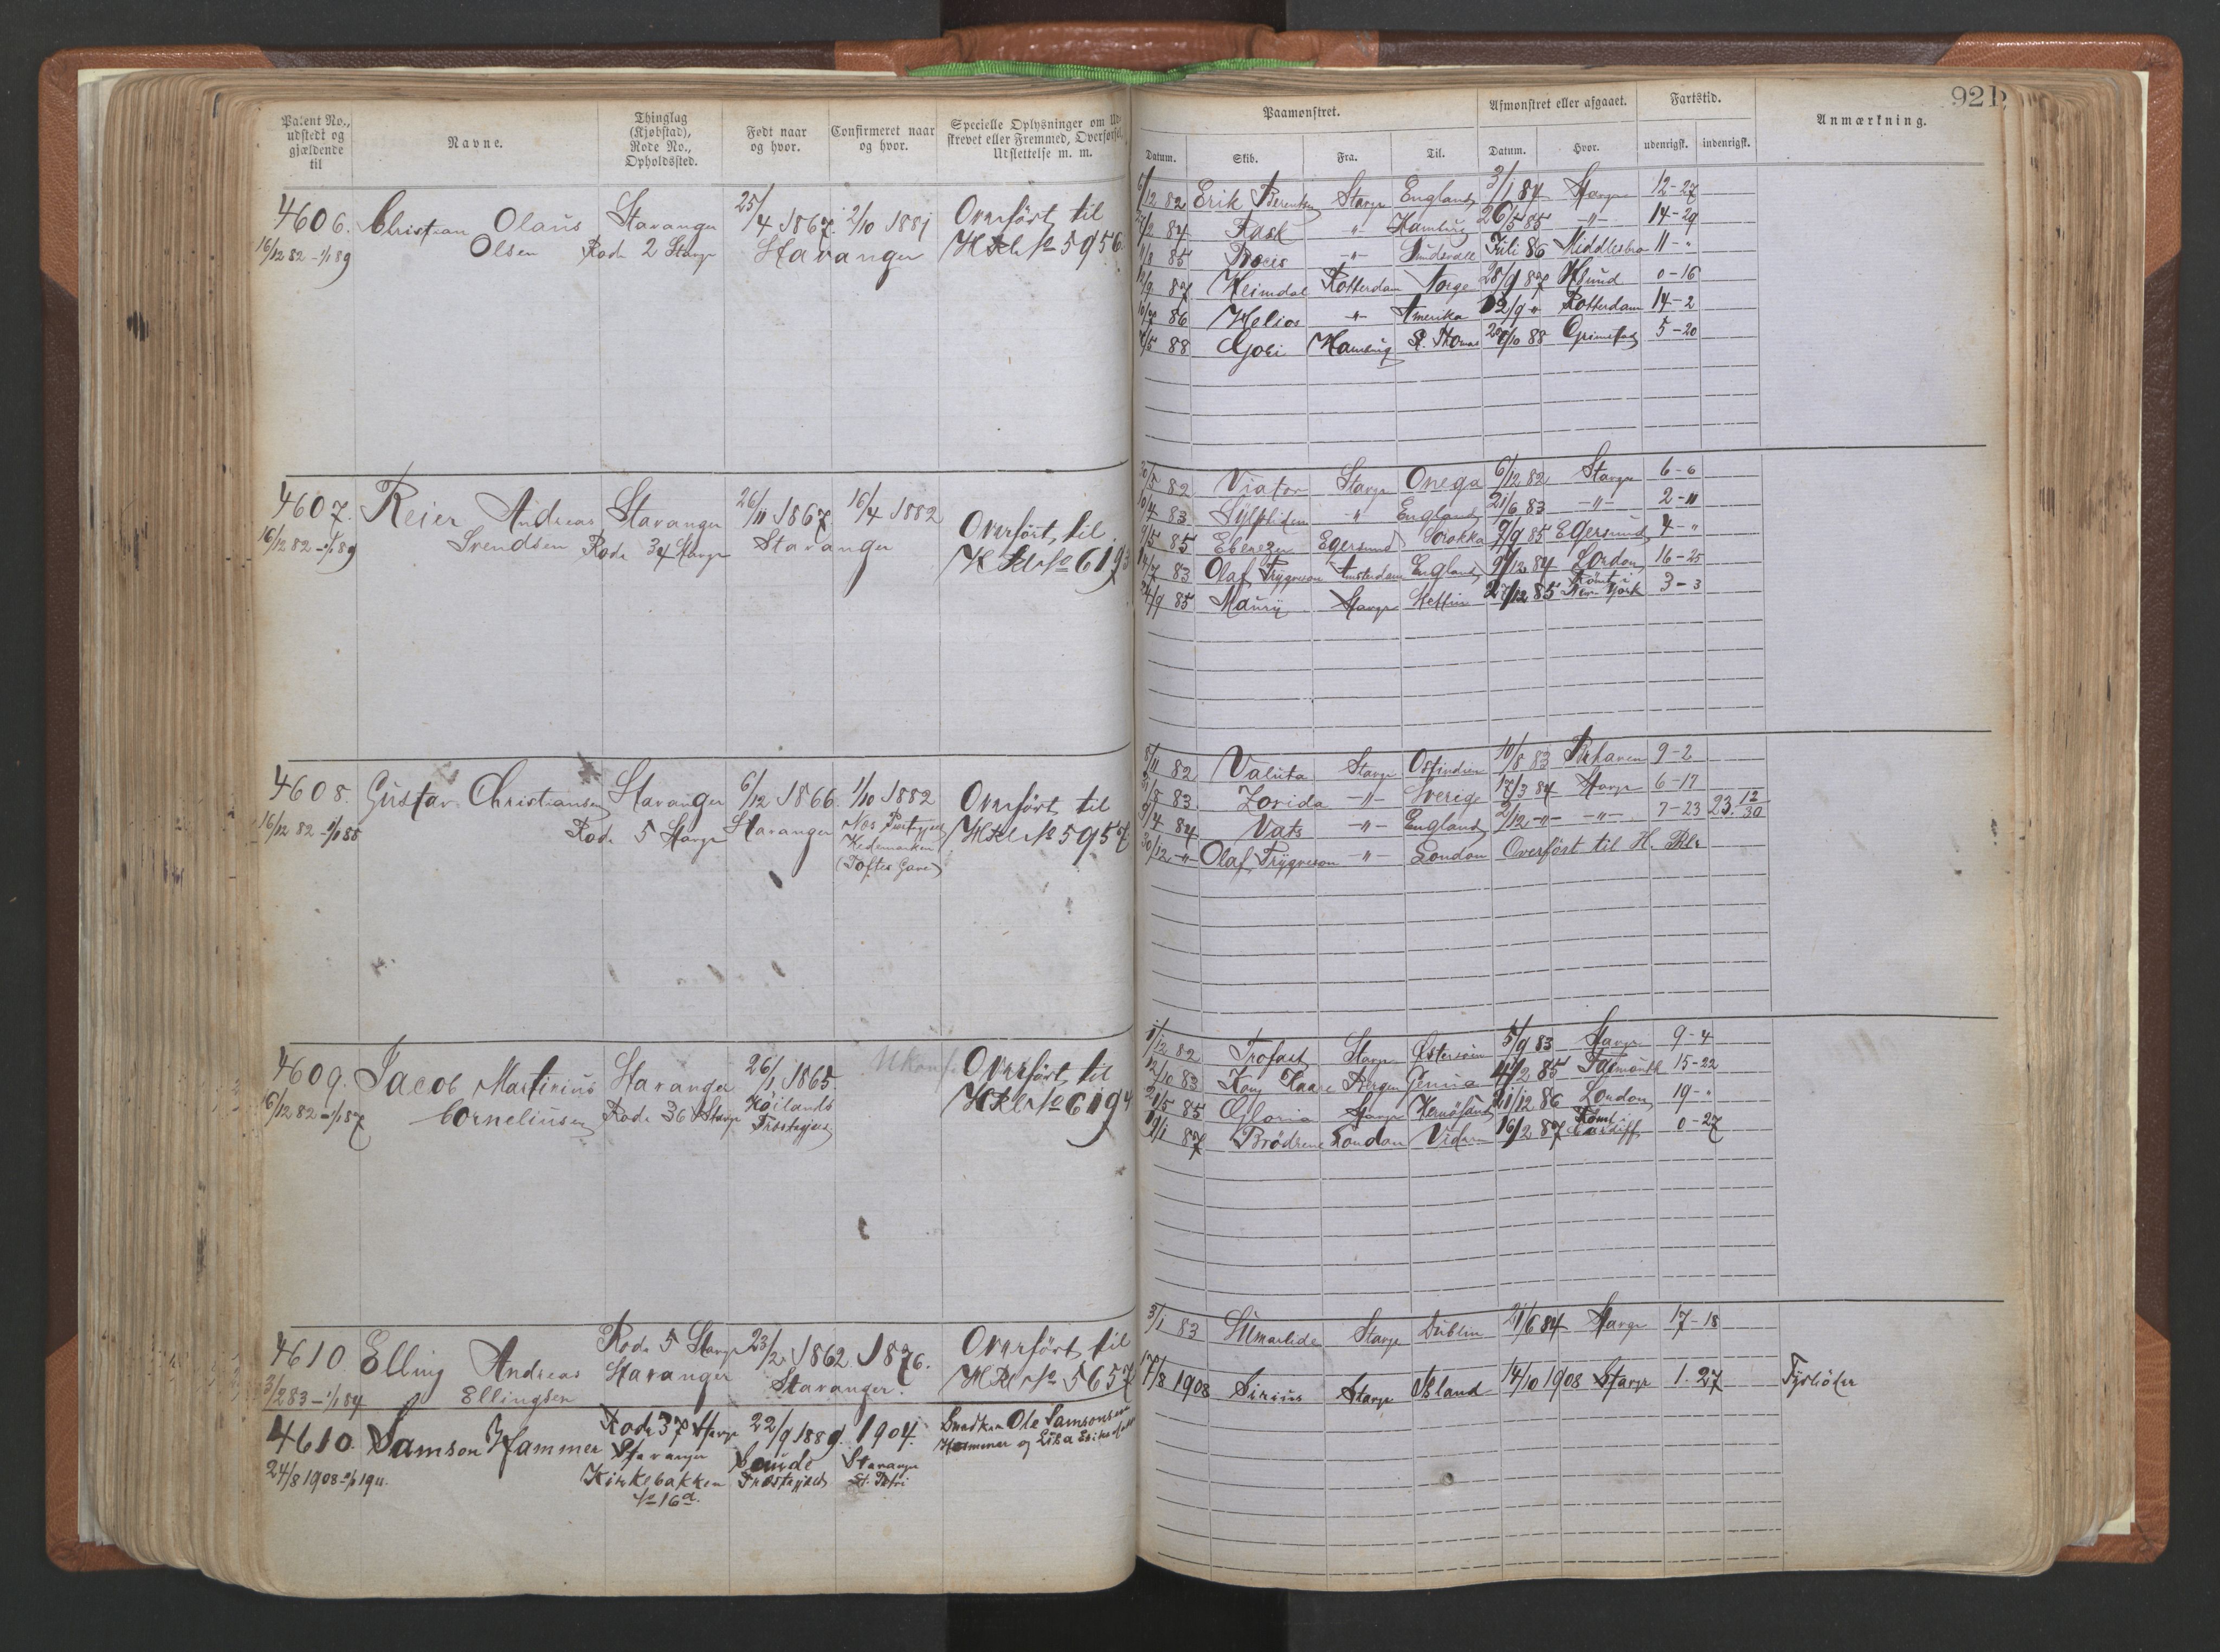 921
Patent No., udstedt og gjældende til
Navne.
Thinglag (Kjøbstad), Rode No., Opholdssted.
Født naar og hvor.
Confirmeret naar og hvor.
Specielle Oplysninger om Udskrevet eller Fremmed, Overførsel, Udslettelse m. m.
Paamønstret.
Afmønstret eller afgaaet.
Fartstid.
Anmærkning.
Datum. Skib. Fra. Til. Datum. Hvor. udenrigsk. indenrigsk.
4606. Christian Olaus Stavanger 25/4 1867. 2/10 1881 Overført til
16/12 82 - 1/1 89 Olsen Rode 2 Stavgr Stavanger HRl No 5956
6/12 82 Erik Berentsen Stavgr England 3/1 84 Stavgr 12-27
84 Rask " Hamburg 26/5 85 -"- 14-29
85 -"- Sundsvall Juli 86 Middlesbro 11-"
87 Heimdal Rotterdam Norge 28/9 87 Hsund 0-16
86 Helios -"- Amerika 12/9 " Rotterdam 14-2
88 Hamburg St. Thomas 29/10 88 Grimstad 5-20
4607. Reier Andreas Stavanger 26/11 1867. 16/4 1882 Overført til
16/12 82 - 1/1 89 Svendsen Rode 34 Stavgr Stavanger HRl No 6193
30/5 82 Viator Stavgr Onega 6/12 82 Stavgr 6-6
10/4 83 Sylphiden " England 21/6 83 -"- 2-11
9/5 85 Ebenezer Egersund Sorokka 9/9 85 Egersund 4-"
14/7 83 Olaf Trygveson Amsterdam England 9/12 84 London 16-25
24/9 85 Maury Stavgr Stettin 27/12 85 Rømt i New York 3-3
4608. Gustav Christiansen Stavanger 6/12 1866. 1/10 1882 Overført til
16/12 82 - 1/1 88 Rode 5 Stavgr Stavanger Nes Præstegjeld HRl No 5957
Hedemarken
(Toftes Gave)
8/11 82 Valuta Stavgr Ostindien 10/8 83 Brhaven 9-2
83 Zorida -"- Sverige 17/3 84 Stavgr 6-17
9/4 84 Vats -"- England 2/12 -"- -"- 7-23 23. 12/30
30/12 -"- Olaf Trygveson -"- London Overført til H. Rl
4609. Jacob Martinius Stavanger 26/1 1865. Ukonf. Overført til
16/12 82 - 1/1 87 Corneliusen Rode 36 Stavgr Høilands HRl No 6194
Præstegjeld
1/12 82 Trofast Stavgr Østersøen 5/9 83 Stavgr 9-4
12/10 83 Kong Haare Bergen Genua 4/2 85 Falmouth 15-22
21/5 85 Gloria Stavgr Hernøsand 21/12 86 London 19-"
19/1 87 Brødrene London 16/2 87 Rømt i Cardiff 0-27
4610. Elling Andreas Rode 5 Stavgr 23/2 1862. 1876. Overført til
3/2 83 - 1/1 84 Ellingsen Stavanger Stavanger. HRl No 5657
3/1 83 Stavgr Dublin 21/6 84 Stavgr 17-18
4610. Samson Hammer Rode 37 Stavgr 22/9 1889. 1904. Ole Samsonsen
24/8 1908 - 1/1 1911. Stavanger Sande Stavanger Hammer og
Kirkebakken Præstegjeld St. Petri
No 16a.
17/8 1908 Sirius Stavgr Island 14/10 1908 Stavgr 1.27 Fyrbøter